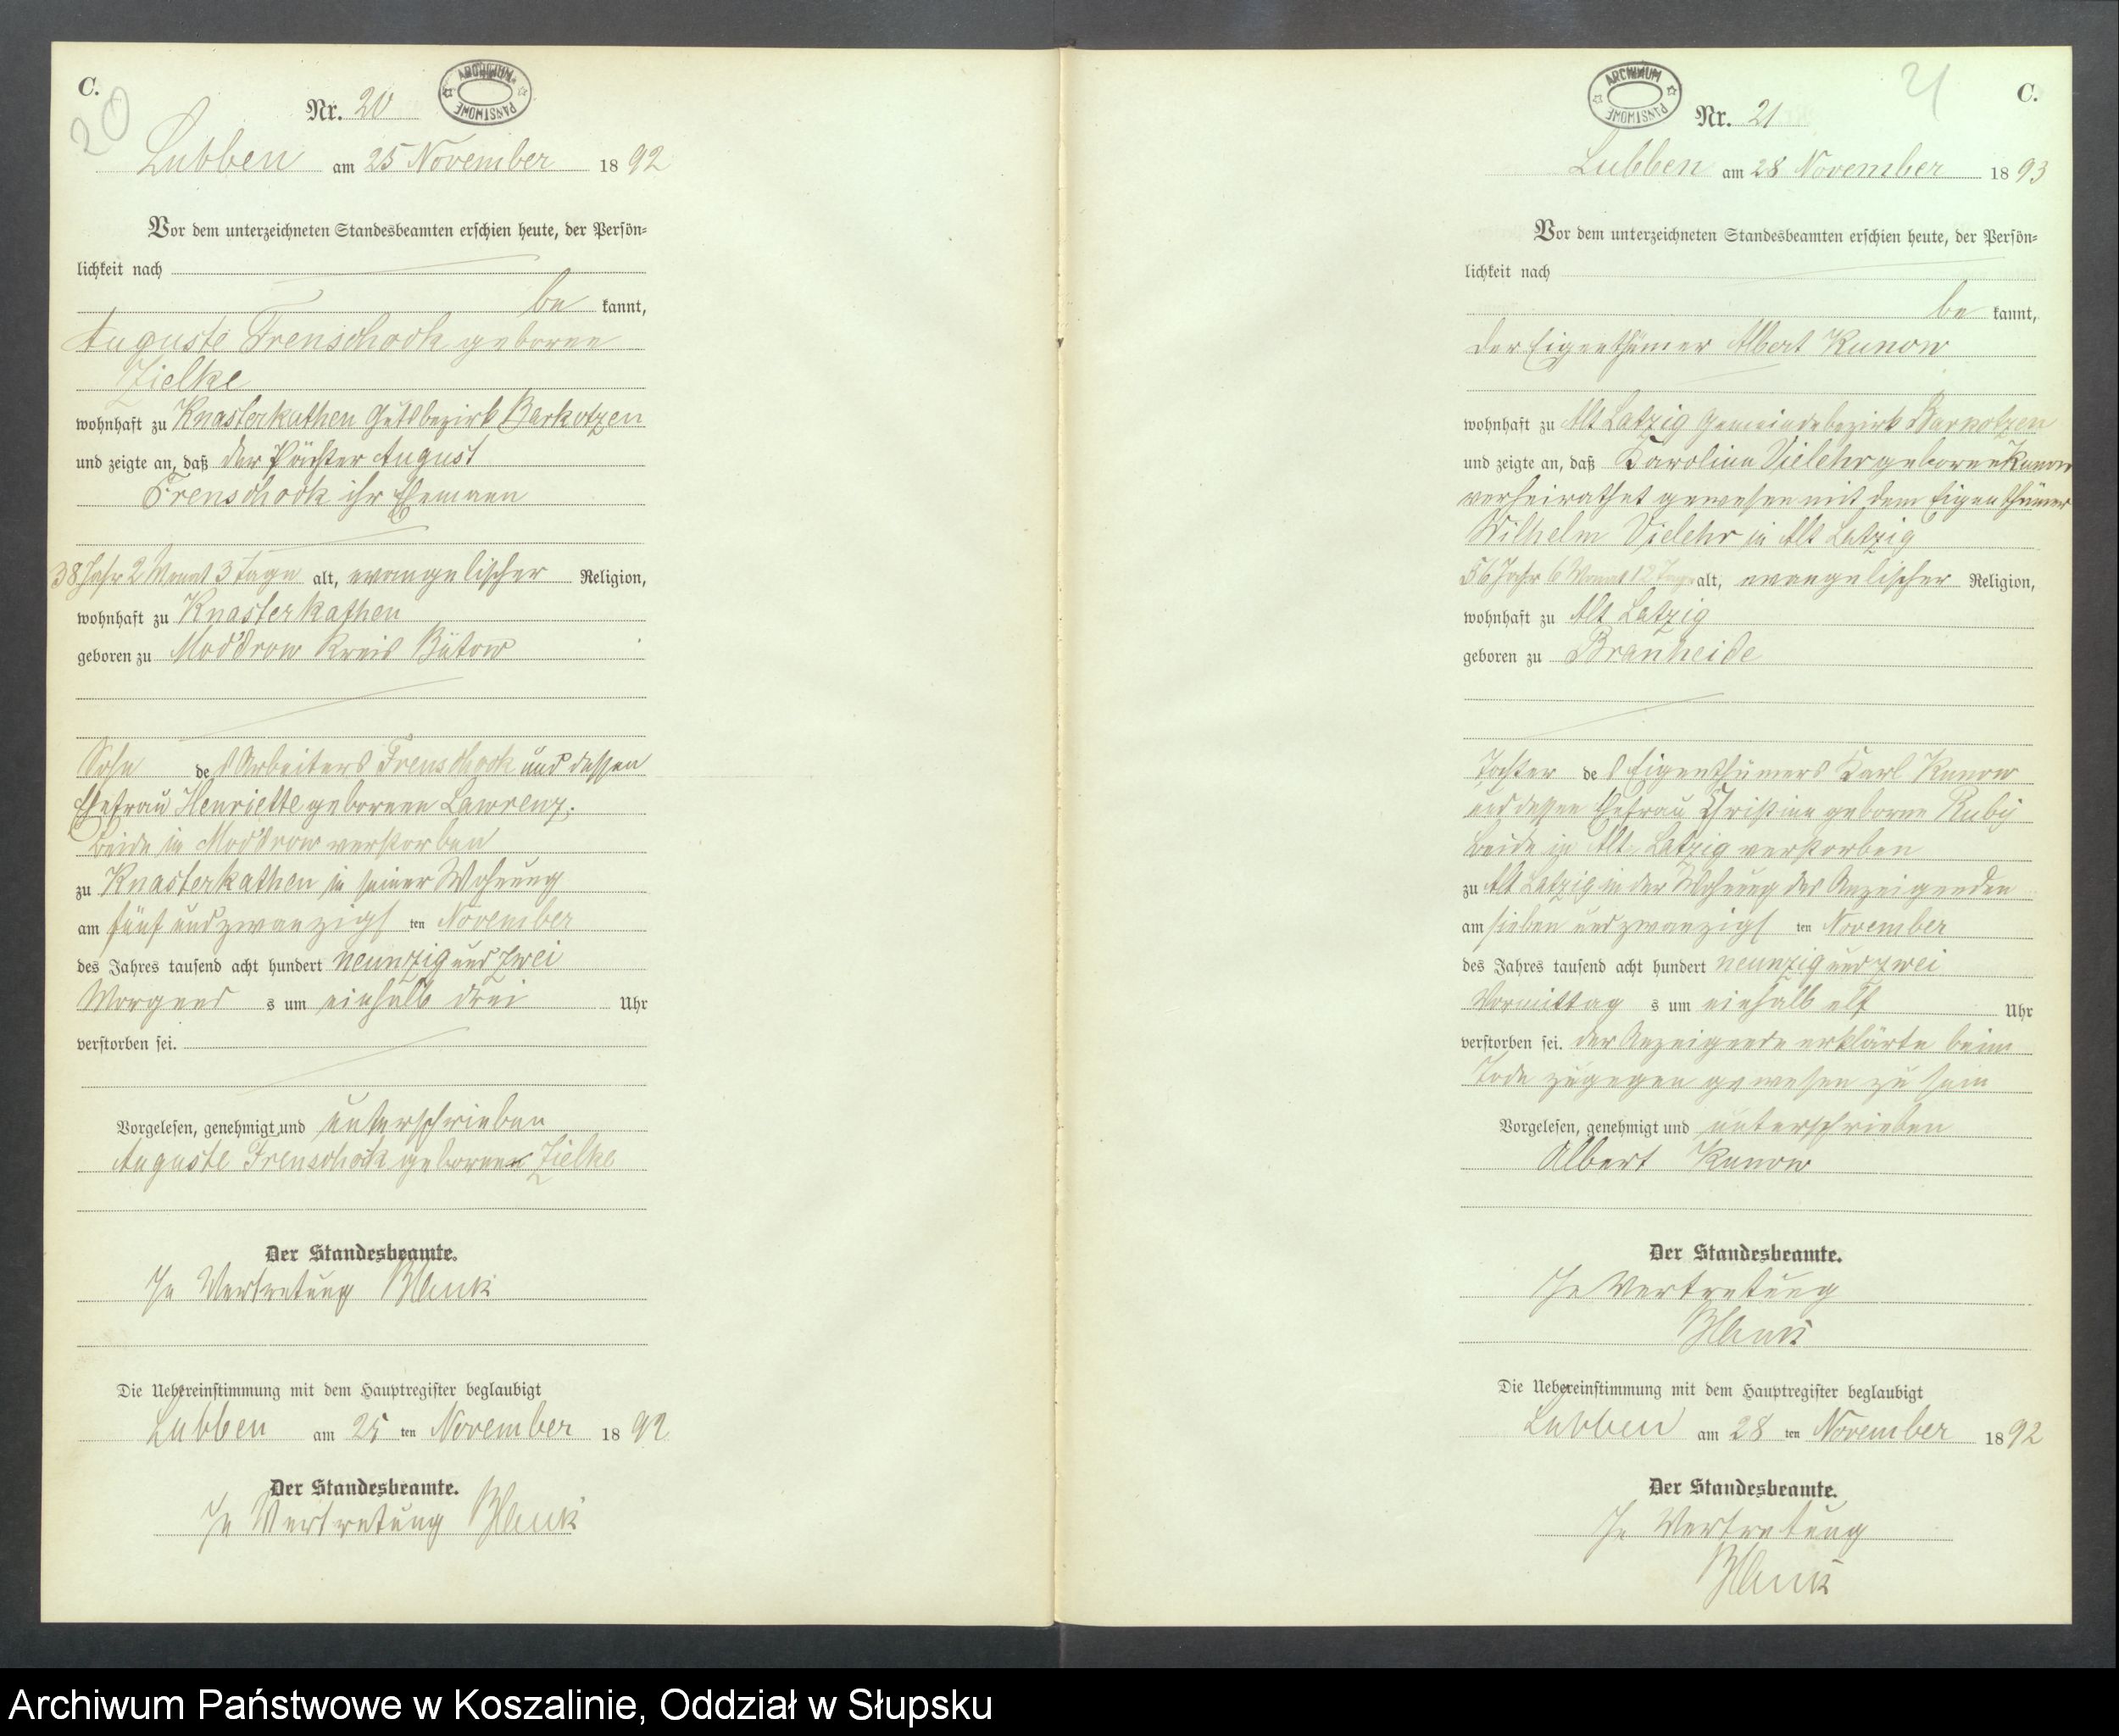 C.
20
ARCHIWUM PAŃSTWOWE
Nr. 20
Lubben am 25 November 1892
Vor dem unterzeichneten Standesbeamten erschien heute, der Persön=
lichkeit nach
be kannt,
Auguste Frenschock geborne
Zielke
wohnhaft zu Knasterkathen Gutsbezirk Barkotzen
und zeigte an, daß der Pächter August
Frenschock ihr Ehemann
38 Jahr 2 Monat 3 Tage alt, evangelischer Religion,
wohnhaft zu Knasterkathen
geboren zu Moddrow Kreis Bütow
Sohn des Arbeiters Frenschock und dessen
Ehefrau Henriette gebornen Lawrenz.
beide in Moddrow verstorben
zu Knasterkathen in seiner Wohnung
am fünf und zwanzigs ten November
des Jahres tausend acht hundert neunzig und zwei
Morgens um einhalb drei Uhr
verstorben sei.
Vorgelesen, genehmigt und unterschrieben
Auguste Frenschock geborne Zielke
Der Standesbeamte.
In Vertretung
Die Uebereinstimmung mit dem Hauptregister beglaubigt
Lubben am 25 ten November 1892
Der Standesbeamte.
In Vertretung
ARCHIWUM PAŃSTWOWE
21
C.
Nr. 21
Lubben am 28 November 1893
Vor dem unterzeichneten Standesbeamten erschien heute, der Persön=
lichkeit nach
be kannt,
der Eigenthümer Albert Kunow
wohnhaft zu Alt Latzig Gemeindebezirk Barkotzen
und zeigte an, daß Karoline Vielehr geborne Kunow
verheirathet gewesen mit dem Eigenthümer
Wilhelm Vielehr in Alt Latzig
56 Jahr 6 Monat 12 Tage alt, evangelischer Religion,
wohnhaft zu Alt Latzig
geboren zu Branheide
Tochter des Eigenthümers Karl Kunow
und dessen Ehefrau Christine geborne Ruby
beide in Alt Latzig verstorben
zu Alt Latzig in der Wohnung des Anzeigenden
am sieben und zwanzigs ten November
des Jahres tausend acht hundert neunzig und zwei
Vormittag s um einhalb elf Uhr
verstorben sei. der Anzeigende erklärte beim
Tode zugegen gewesen zu sein
Vorgelesen, genehmigt und unterschrieben
Albert Kunow
Der Standesbeamte.
In Vertretung
Die Uebereinstimmung mit dem Hauptregister beglaubigt
Lubben am 28 ten November 1892
Der Standesbeamte.
In Vertretung
Archiwum Państwowe w Koszalinie, Oddział w Słupsku